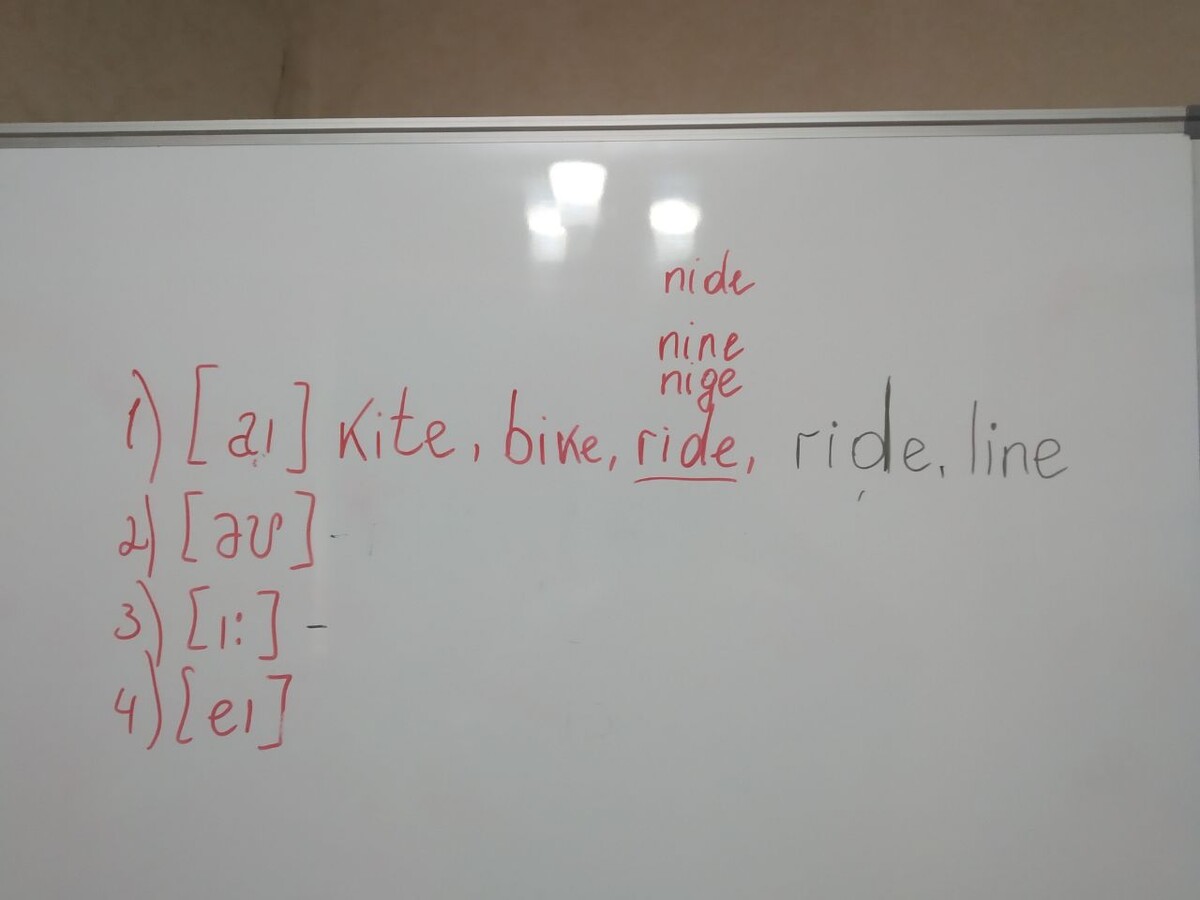 nide
nine
nige
1) [aı] kite, bike, ride, ride, line
2) [əʊ] -
3) [ı:] -
4) [eı]